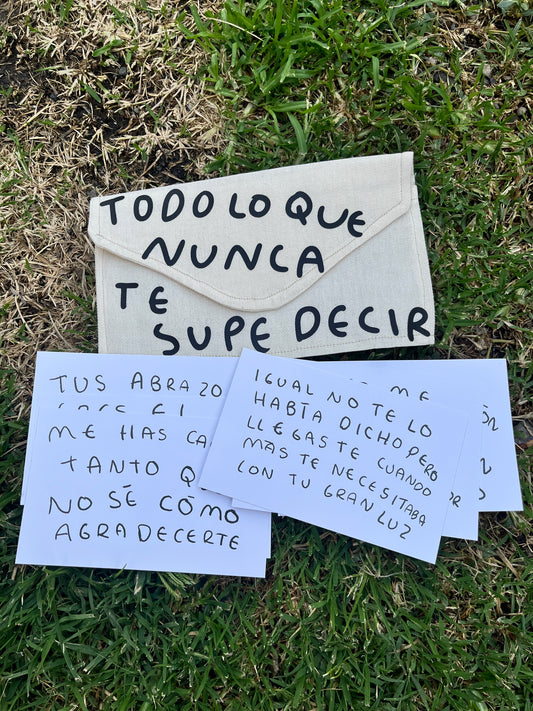 TODO LO QUE
NUNCA
TE
SUPE DECIR
TUS ABRAZO
ME HAS CA
TANTO Q
NO SÉ CÓMO
AGRADECERTE
IGUAL NO TE LO
HABÍA DICHO PERO
LLEGASTE CUANDO
MAS TE NECESITABA
CON TU GRAN LUZ
ME
ÓN
OR